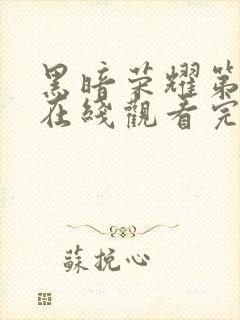 黑暗荣耀第
在线觀看完
蘇挽心